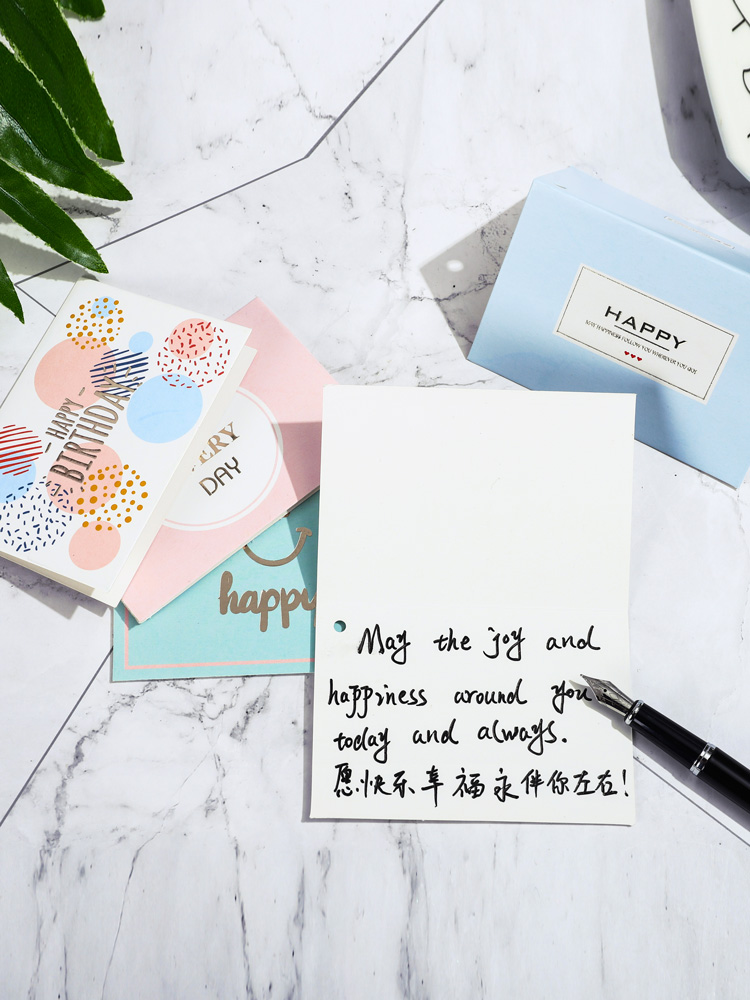 — HAPPY —
BIRTHDAY
ERY
DAY
happy
HAPPY
MAY HAPPINESS FOLLOW YOU WHEREVER YOU GO
May the joy and
happiness around you
today and always.
愿快乐幸福永伴你左右!